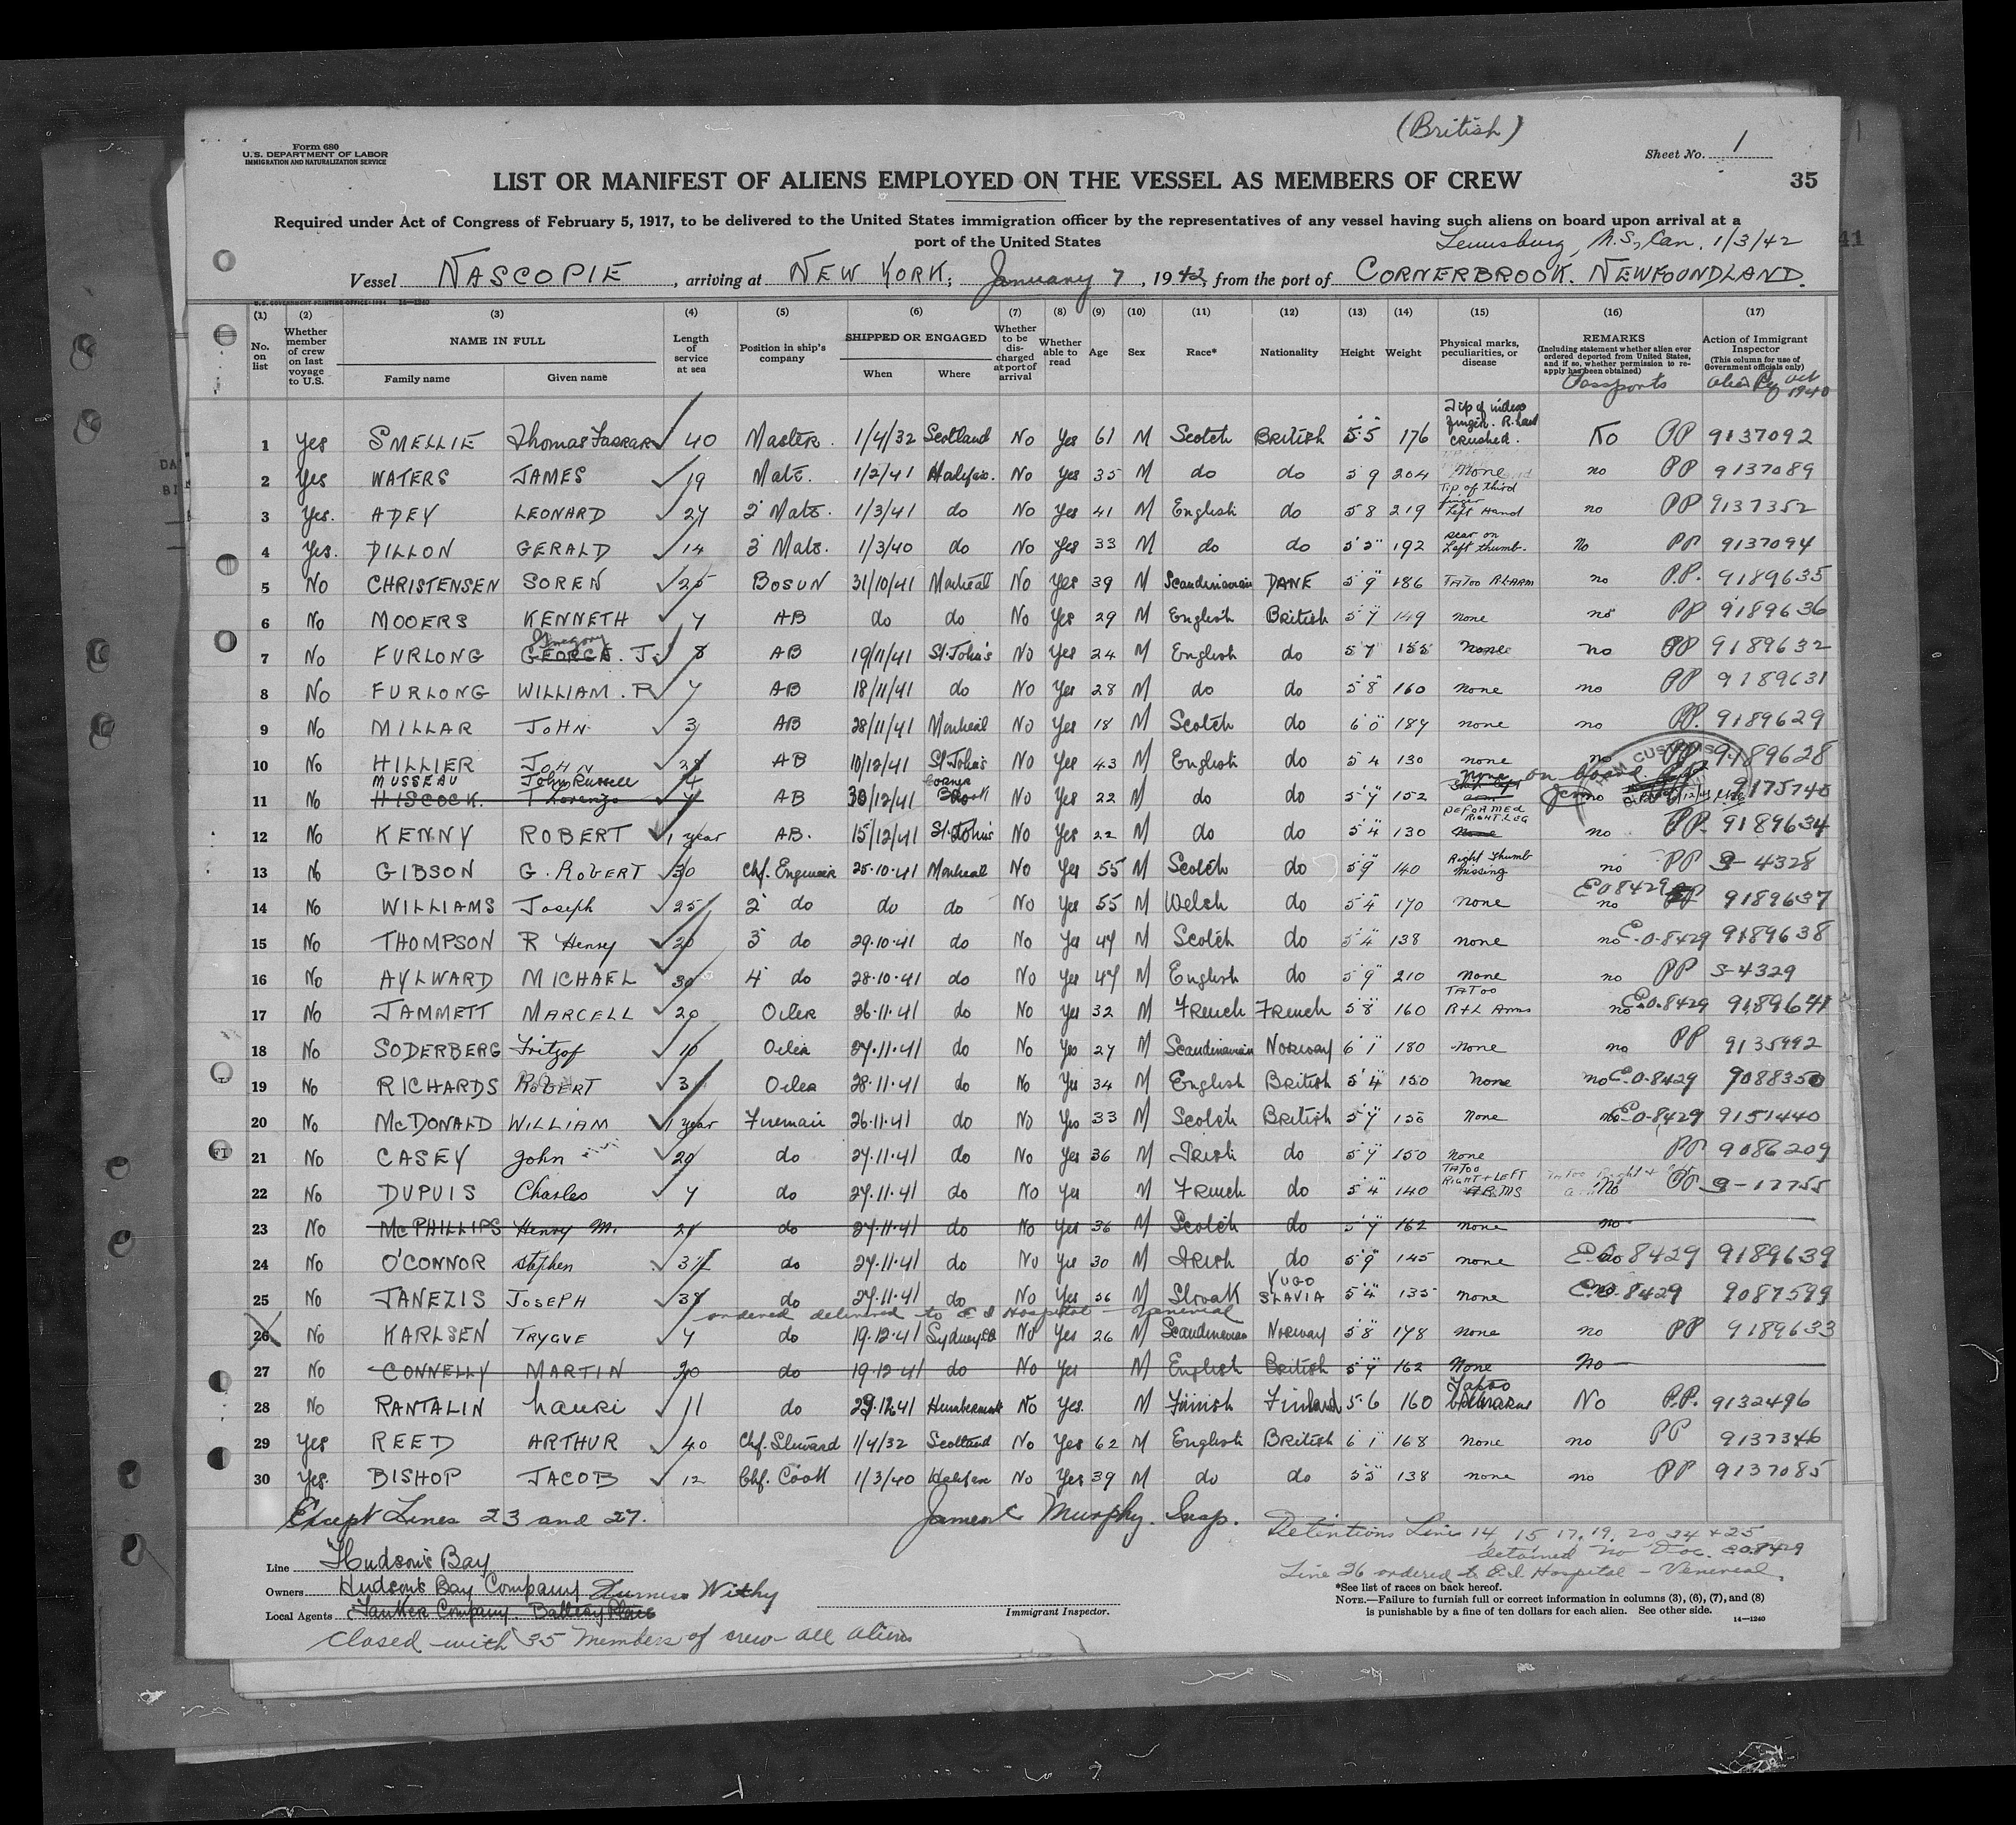 (British)
Form 680
U.S. DEPARTMENT OF LABOR
IMMIGRATION AND NATURALIZATION SERVICE
Sheet No. 1
LIST OR MANIFEST OF ALIENS EMPLOYED ON THE VESSEL AS MEMBERS OF CREW
35
Required under Act of Congress of February 5, 1917, to be delivered to the United States immigration officer by the representatives of any vessel having such aliens on board upon arrival at a
port of the United States
N.S, Can. 1/3/42
41
Vessel NASCOPIE, arriving at NEW YORK; January 7, 1942, from the port of CORNERBROOK. NEWFOUNDLAND.
(1) (2) (3) (4) (5) (6) (7) (8) (9) (10) (11) (12) (13) (14) (15) (16) (17)
No. on list
Whether member of crew on last voyage to U.S.
NAME IN FULL
Family name Given name
Length of service at sea
Position in ship's company
SHIPPED OR ENGAGED
When Where
Whether to be discharged at port of arrival
Whether able to read
Age
Sex
Race*
Nationality
Height
Weight
Physical marks, peculiarities, or disease
REMARKS
(Including statement whether alien ever ordered deported from United States, and if so, whether permission to reapply has been obtained)
Passports
Action of Immigrant Inspector
(This column for use of Government officials only)
Alien Reg Oct 1940
1 Yes SMELLIE Thomas Farrar 40 Master. 1/4/32 Scotland No Yes 61 M Scotch British 5'5" 176 Tip of index finger. R. hand crushed. No PP 9137092
2 Yes WATERS JAMES 19 Mate. 1/2/41 Halifax. No Yes 35 M do do 5 9 204 None no PP 9137089
3 Yes. ADEY LEONARD 27 2 Mate. 1/3/41 do No Yes 41 M English do 5 8 219 Tip of third finger Left Hand no PP 9137352
4 Yes. DILLON GERALD 14 3 Mate. 1/3/40 do No Yes 33 M do do 5'5" 192 scar on Left thumb. No PP 9137094
5 No CHRISTENSEN SOREN 25 BOSUN 31/10/41 Montreal No Yes 39 M Scandinavian DANE 5'9" 186 TATOO R L ARM no P.P. 9189635
6 No MOOERS KENNETH 7 AB do do No Yes 29 M English British 5'7" 149 none no PP 9189636
7 No FURLONG Gregory GEORGE. J. 8 AB 19/11/41 St. John's No Yes 24 M English do 5 7 155 None no PP 9189632
8 No FURLONG WILLIAM. P 7 AB 18/11/41 do No Yes 28 M do do 5'8" 160 none no PP 9189631
9 No MILLAR JOHN 3 AB 28/11/41 Montreal No Yes 18 M Scotch do 6'0" 187 none no PP. 9189629
10 No HILLIER JOHN 28 AB 10/12/41 St John's No Yes 43 M English do 5 4 130 none no PP 9189628
MUSSEAU John Russell 4 Corner none on board
11 No HISCOCK. T Lorenzo 7 AB 30/12/41 Brook No Yes 22 M do do 5'7" 152 no 9175740
12 No KENNY ROBERT 1 year AB. 15/12/41 St. John's No Yes 22 M do do 5'4" 130 DEFORMED RIGHT LEG None no PP. 9189634
13 No GIBSON G. ROBERT 30 Chf. Engineer 25.10.41 Montreal No Yes 55 M Scotch do 5'9" 140 Right Thumb missing no PP S-4328
14 No WILLIAMS Joseph 25 2 do do do No Yes 55 M Welsh do 5'4" 170 none EO 8429 no PP 9189637
15 No THOMPSON R Henry 20 3 do 29.10.41 do No Yes 47 M Scotch do 5'4" 138 none no E.O-8429 9189638
16 No AYLWARD MICHAEL 30 4 do 28.10.41 do No Yes 47 M English do 5'9" 210 None no PP S-4329
17 No JAMMETT MARCELL 20 OILER 26.11.41 do No Yes 32 M French French 5'8" 160 TATOO R+L Arms no E.O-8429 9189641
18 No SODERBERG Fritzof 10 Oiler 27.11.41 do No Yes 27 M Scandinavian Norway 6'1" 180 none no PP 9135992
19 No RICHARDS ROBERT 3 Oiler 28.11.41 do No Yes 34 M English British 5'4" 150 None no E.O-8429 9088350
20 No McDONALD WILLIAM 1 year Fireman 26.11.41 do No Yes 33 M Scotch British 5'7" 155 None no E.O-8429 9151440
21 No CASEY John 20 do 27.11.41 do No Yes 36 M Irish do 5'7" 150 none PP 9086209
22 No DUPUIS Charles 7 do 27.11.41 do No Yes M French do 5'4" 140 TATOO RIGHT + LEFT ARMS No PP S-17755
23 No McPHILLIPS Henry M. 21 do 27.11.41 do No Yes 36 M Scotch do 5'7" 162 none no
24 No O'CONNOR stephen 3½ do 27.11.41 do No Yes 30 M Irish do 5'9" 145 none E.O. 8429 9189639
25 No JANEZIS JOSEPH 38 do 27.11.41 do No Yes 56 M Slovak YUGO SLAVIA 5'4" 135 none E.O. 8429 9087599
ordered delivered to E I Hospital - Venereal
26 No KARLSEN TRYGVE 7 do 19.12.41 Sydney CB No Yes 26 M Scandinavian Norway 5'8" 178 none no PP 9189633
27 No CONNELLY MARTIN 20 do 19.12.41 do No Yes M English British 5'7" 162 None No
28 No RANTALIN Lauri 11 do 29.12.41 Humbermouth No Yes. M Finish Finland 5.6 160 Tatoo No P.P. 9132496
29 Yes REED ARTHUR 40 Chf. Steward 1/4/32 Scotland No Yes 62 M English British 6'1" 168 none no PP 9137346
30 Yes. BISHOP JACOB 12 Chf. Cook 1/3/40 Halifax No Yes 39 M do do 5'5" 138 none no PP 9137085
Except Lines 23 and 27.
James C Murphy. Insp.
Detentions Lines 14, 15 17, 19, 20, 24 + 25
detained no Doc. E.O.8429
Line 26 ordered to E.I. Hospital - Venereal.
Line Hudson's Bay
Owners Hudson's Bay Company Furness Withy
Local Agents Company. Battery Place
Immigrant Inspector.
*See list of races on back hereof.
NOTE.—Failure to furnish full or correct information in columns (3), (6), (7), and (8)
is punishable by a fine of ten dollars for each alien. See other side.
14—1240
Closed with 35 Members of crew all aliens